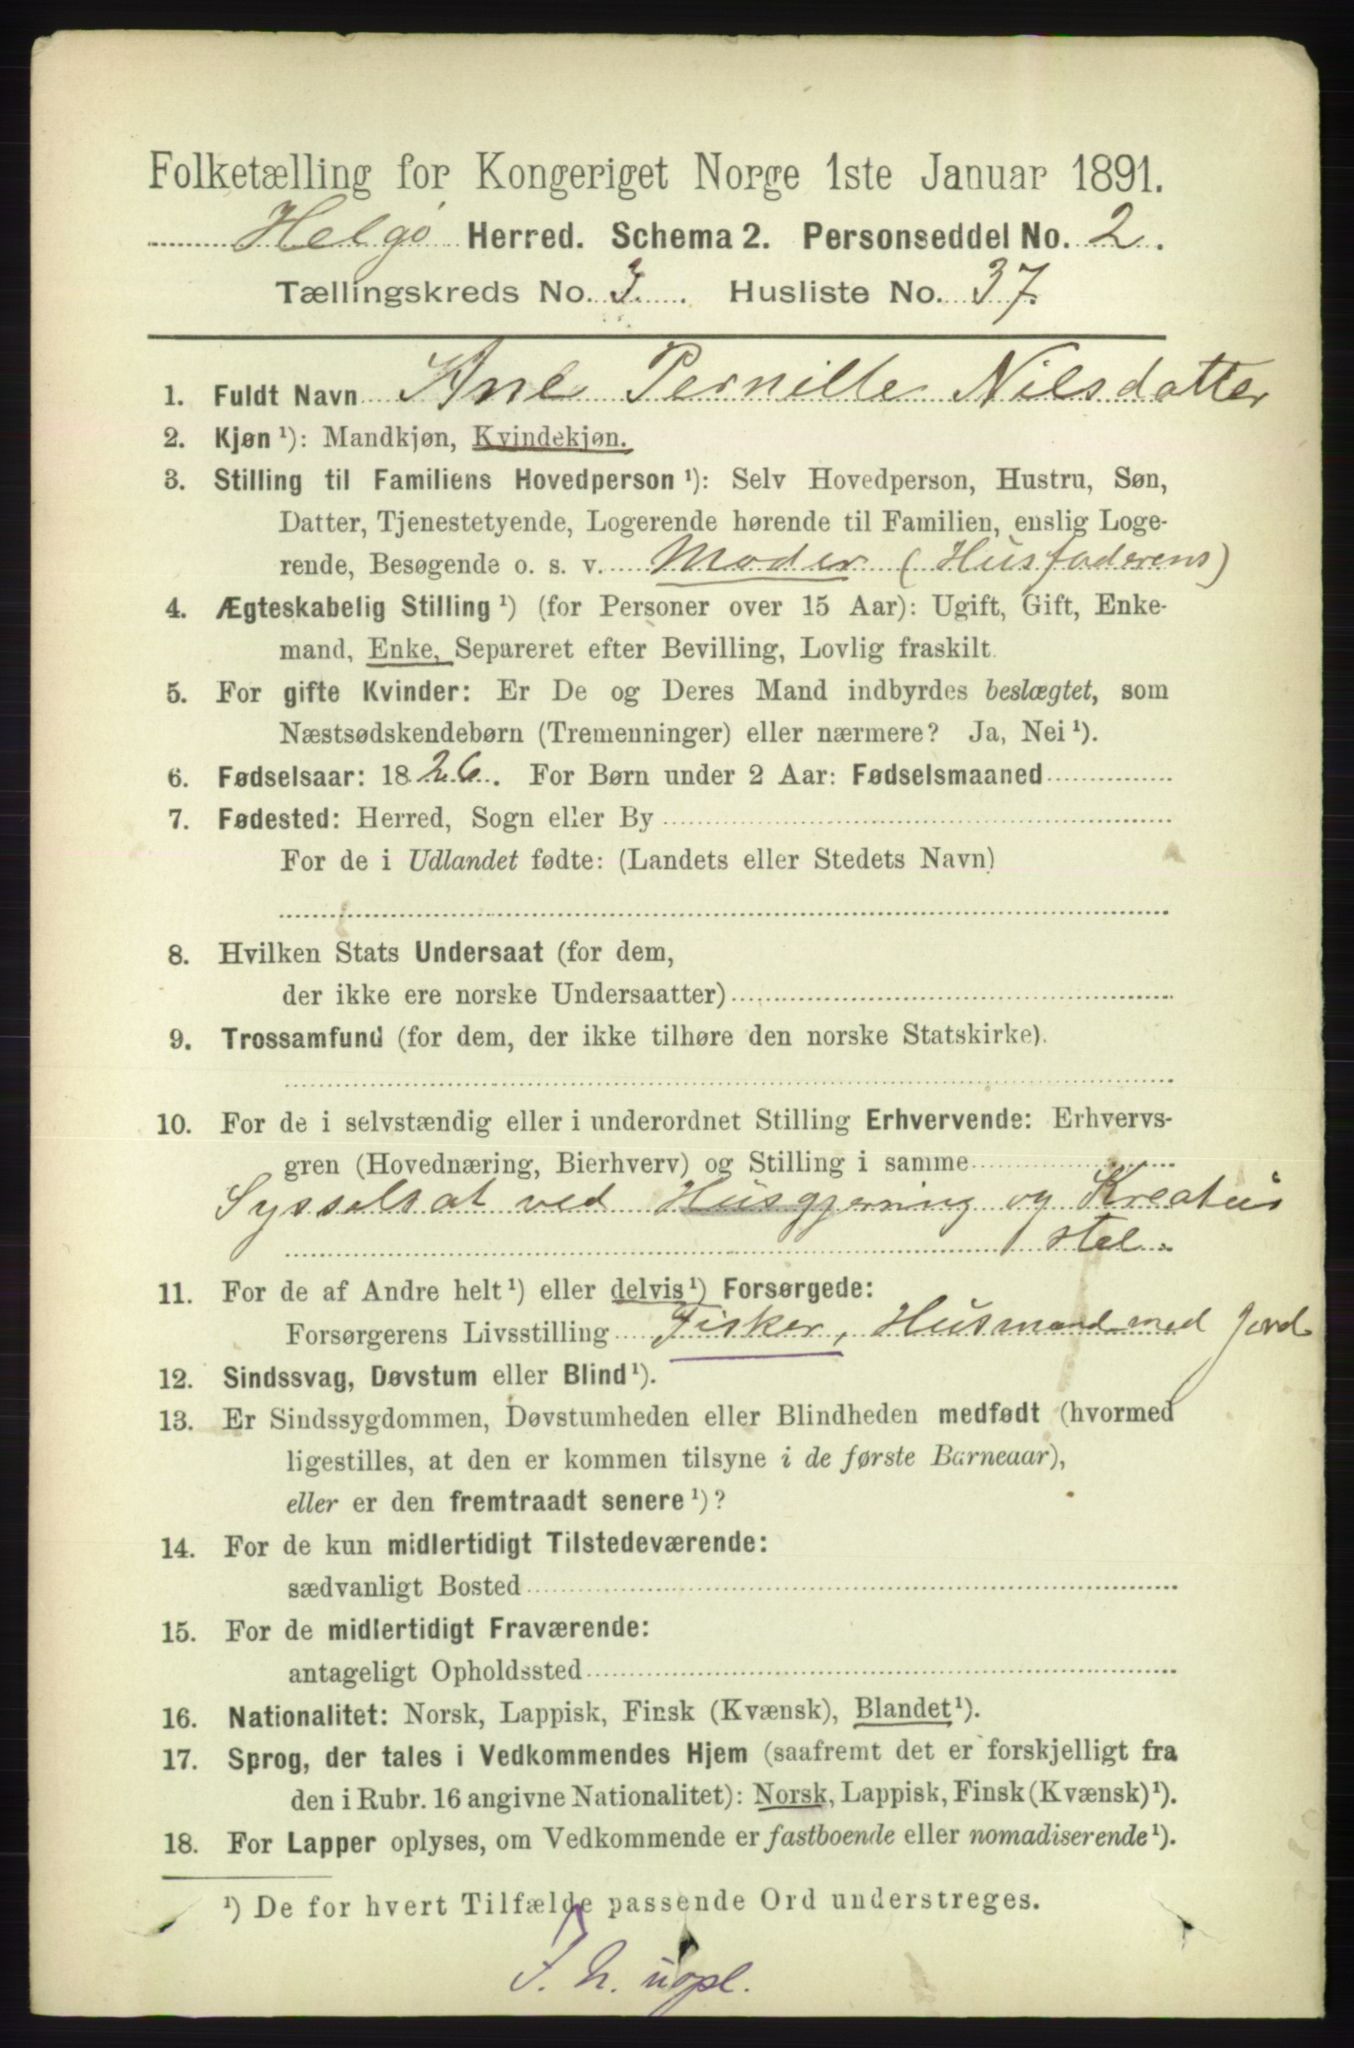 Folketælling for Kongeriget Norge 1ste Januar 1891.
Helgø Herred. Schema 2. Personseddel No. 2.
Tællingskreds No. 3. Husliste No. 37.
1. Fuldt Navn Ane Pernille Nilsdatter
2. Kjøn ¹): Mandkjøn, Kvindekjøn.
3. Stilling til Familiens Hovedperson ¹): Selv Hovedperson, Hustru, Søn,
Datter, Tjenestetyende, Logerende hørende til Familien, enslig Loge-
rende, Besøgende o. s. v. Moder (Husfaderens)
4. Ægteskabelig Stilling ¹) (for Personer over 15 Aar): Ugift, Gift, Enke-
mand, Enke, Separeret efter Bevilling, Lovlig fraskilt.
5. For gifte Kvinder: Er De og Deres Mand indbyrdes beslægtet, som
Næstsødskendebørn (Tremenninger) eller nærmere? Ja, Nei ¹).
6. Fødselsaar: 1826. For Børn under 2 Aar: Fødselsmaaned
7. Fødested: Herred, Sogn eller By
For de i Udlandet fødte: (Landets eller Stedets Navn)
8. Hvilken Stats Undersaat (for dem,
der ikke ere norske Undersaatter)
9. Trossamfund (for dem, der ikke tilhøre den norske Statskirke).
10. For de i selvstændig eller i underordnet Stilling Erhvervende: Erhvervs-
gren (Hovednæring, Bierhverv) og Stilling i samme
Sysselsat ved Husgjerning og Kreatur
stel.
11. For de af Andre helt ¹) eller delvis ¹) Forsørgede:
Forsørgerens Livsstilling Fisker, Husmand med Jord
12. Sindssvag, Døvstum eller Blind ¹).
13. Er Sindssygdommen, Døvstumheden eller Blindheden medfødt (hvormed
ligestilles, at den er kommen tilsyne i de første Barneaar),
eller er den fremtraadt senere ¹)?
14. For de kun midlertidigt Tilstedeværende:
sædvanligt Bosted
15. For de midlertidigt Fraværende:
antageligt Opholdssted
16. Nationalitet: Norsk, Lappisk, Finsk (Kvænsk), Blandet ¹).
17. Sprog, der tales i Vedkommendes Hjem (saafremt det er forskjelligt fra
den i Rubr. 16 angivne Nationalitet): Norsk, Lappisk, Finsk (Kvænsk) ¹).
18. For Lapper oplyses, om Vedkommende er fastboende eller nomadiserende ¹).
¹) De for hvert Tilfælde passende Ord understreges.
7. h. uopl.